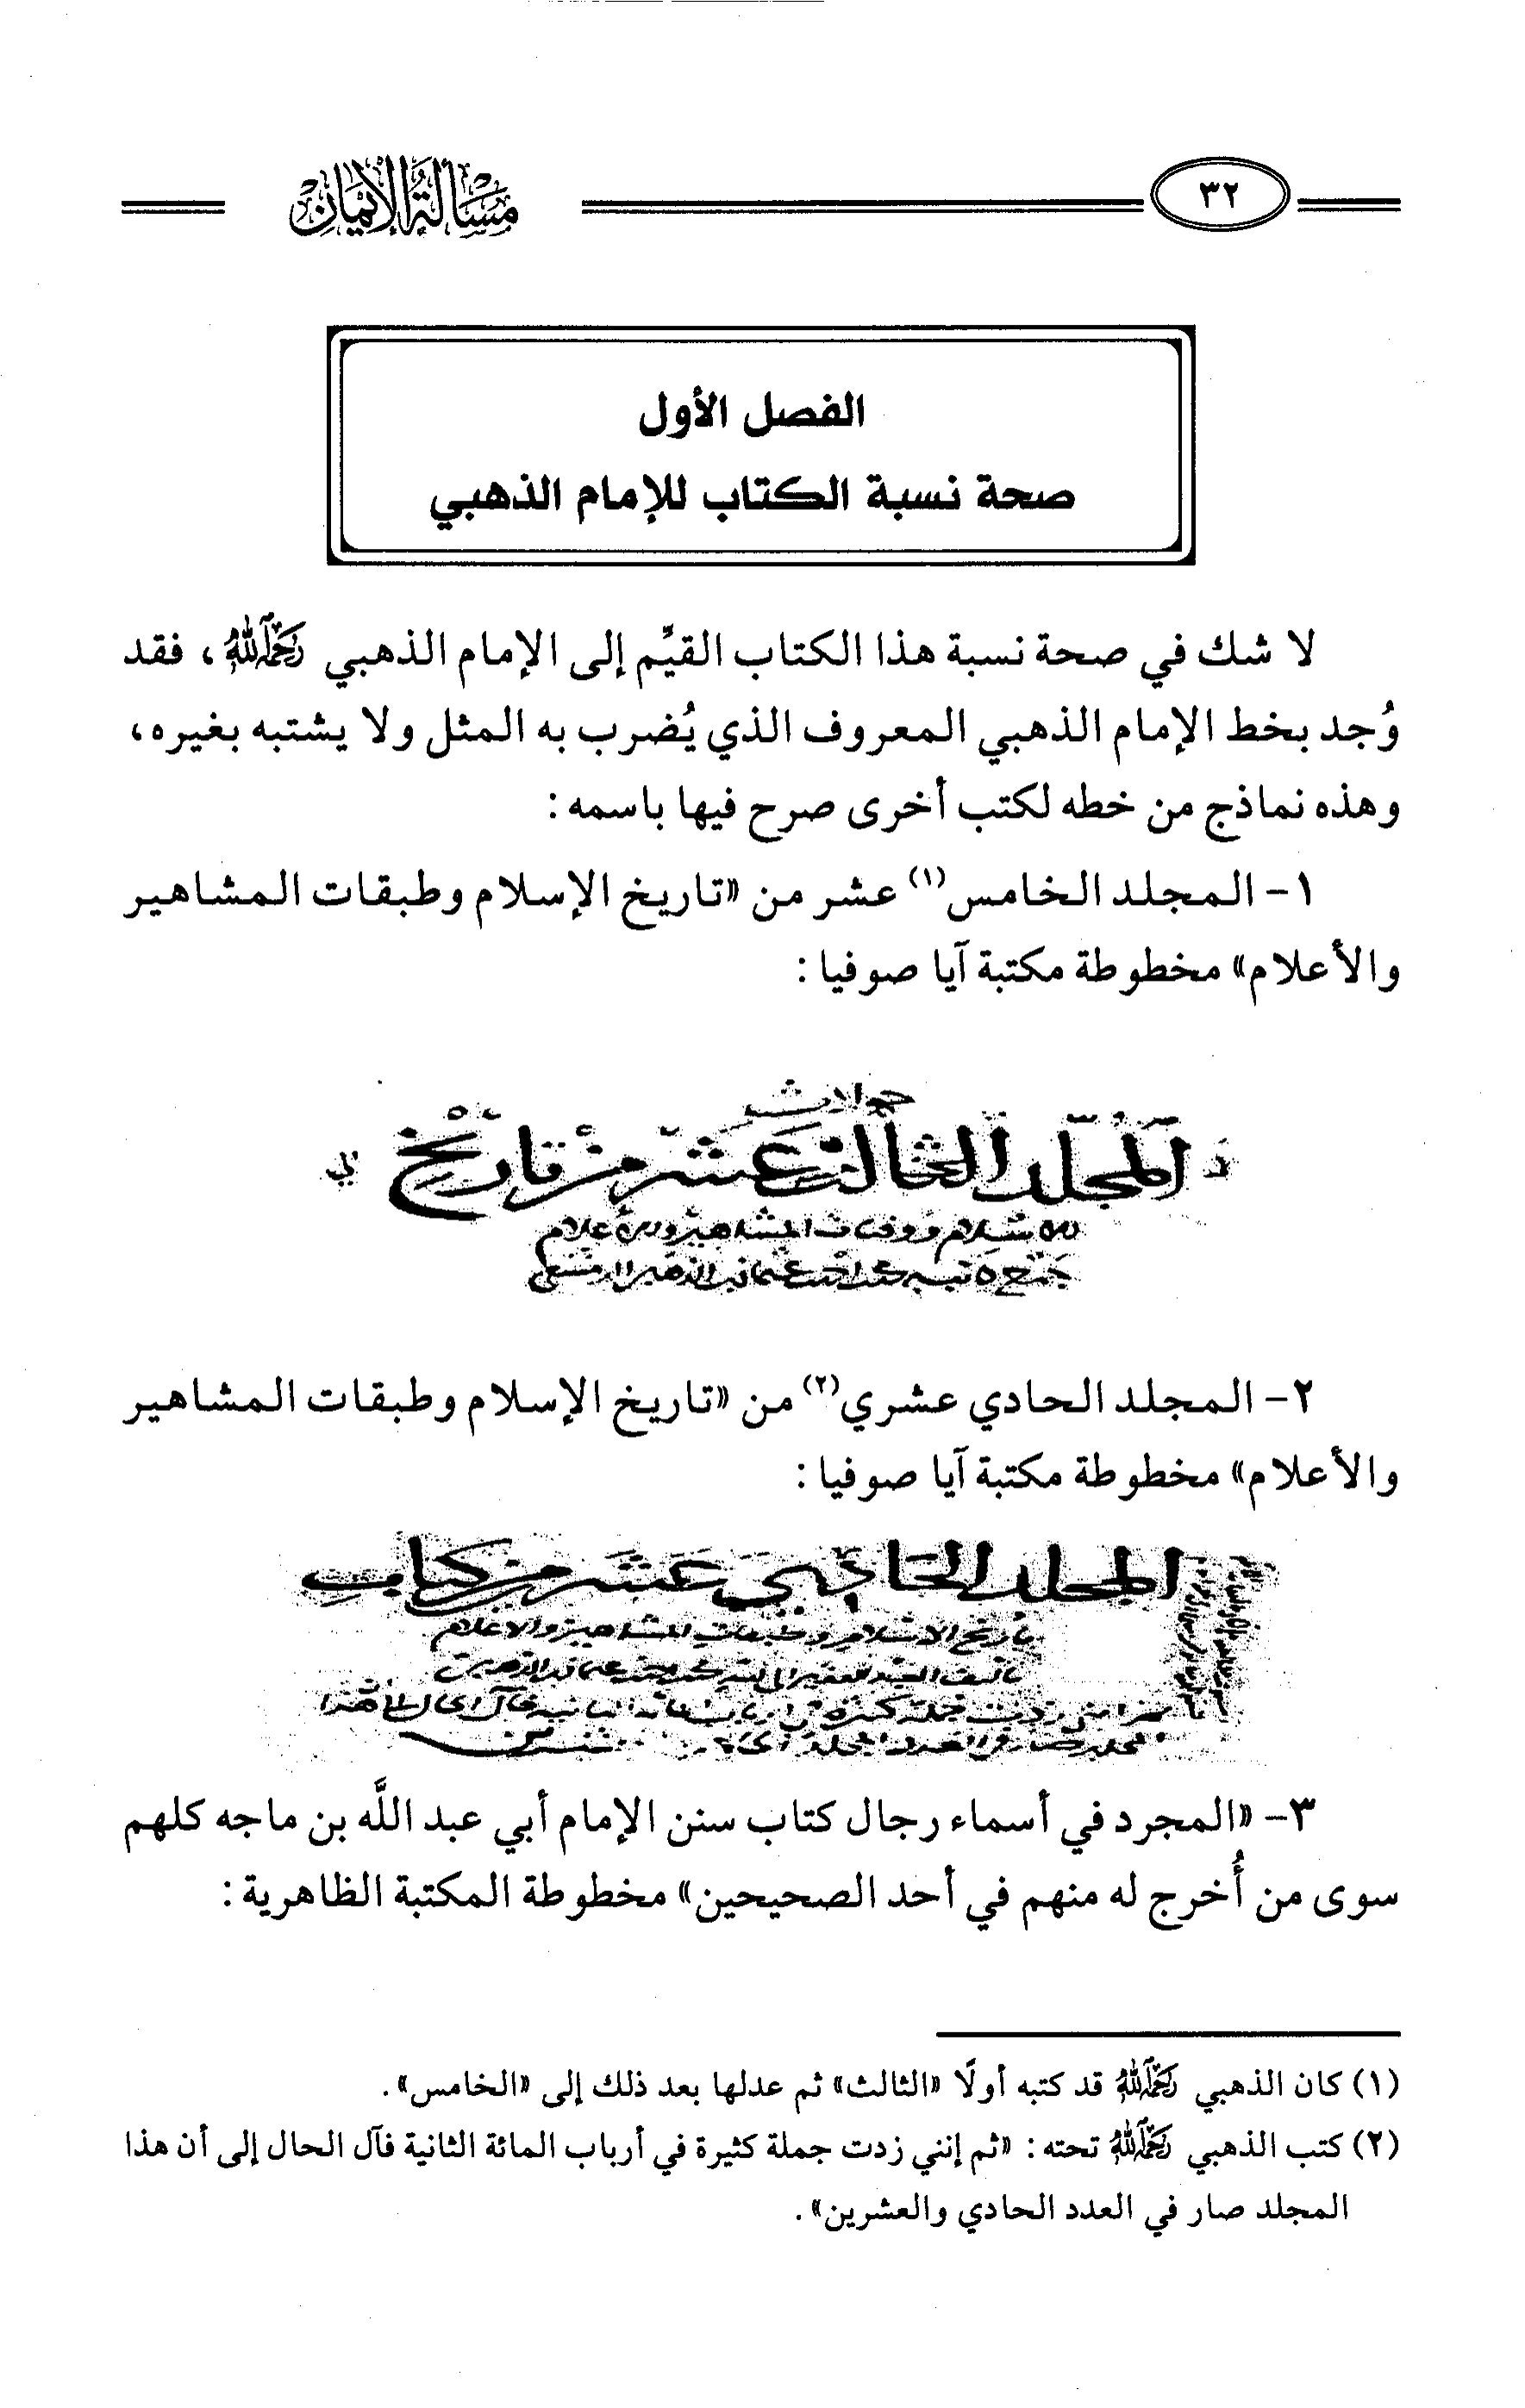 ٣٢
مسألة الإيمان
الفصل الأول
صحة نسبة الكتاب للإمام الذهبي
لا شك في صحة نسبة هذا الكتاب القيِّم إلى الإمام الذهبي رَحِمَهُ اللهُ، فقد
وُجد بخط الإمام الذهبي المعروف الذي يُضرب به المثل ولا يشتبه بغيره،
وهذه نماذج من خطه لكتب أخرى صرح فيها باسمه:
١- المجلد الخامس(١) عشر من «تاريخ الإسلام وطبقات المشاهير
والأعلام» مخطوطة مكتبة آيا صوفيا:
المجلد الثالث عشر من تاريخ
الاسلام ووفيات المشاهير والاعلام
٢- المجلد الحادي عشري(٢) من «تاريخ الإسلام وطبقات المشاهير
والأعلام» مخطوطة مكتبة آيا صوفيا:
المجلد الحادي عشر من كتاب
تاريخ الاسلام وطبقات المشاهير والاعلام
٣- «المجرد في أسماء رجال كتاب سنن الإمام أبي عبد اللَّه بن ماجه كلهم
سوى من أُخرج له منهم في أحد الصحيحين» مخطوطة المكتبة الظاهرية:
(١) كان الذهبي رَحِمَهُ اللهُ قد كتبه أولًا «الثالث» ثم عدلها بعد ذلك إلى «الخامس».
(٢) كتب الذهبي رَحِمَهُ اللهُ تحته: «ثم إنني زدت جملة كثيرة في أرباب المائة الثانية فآل الحال إلى أن هذا
المجلد صار في العدد الحادي والعشرين».